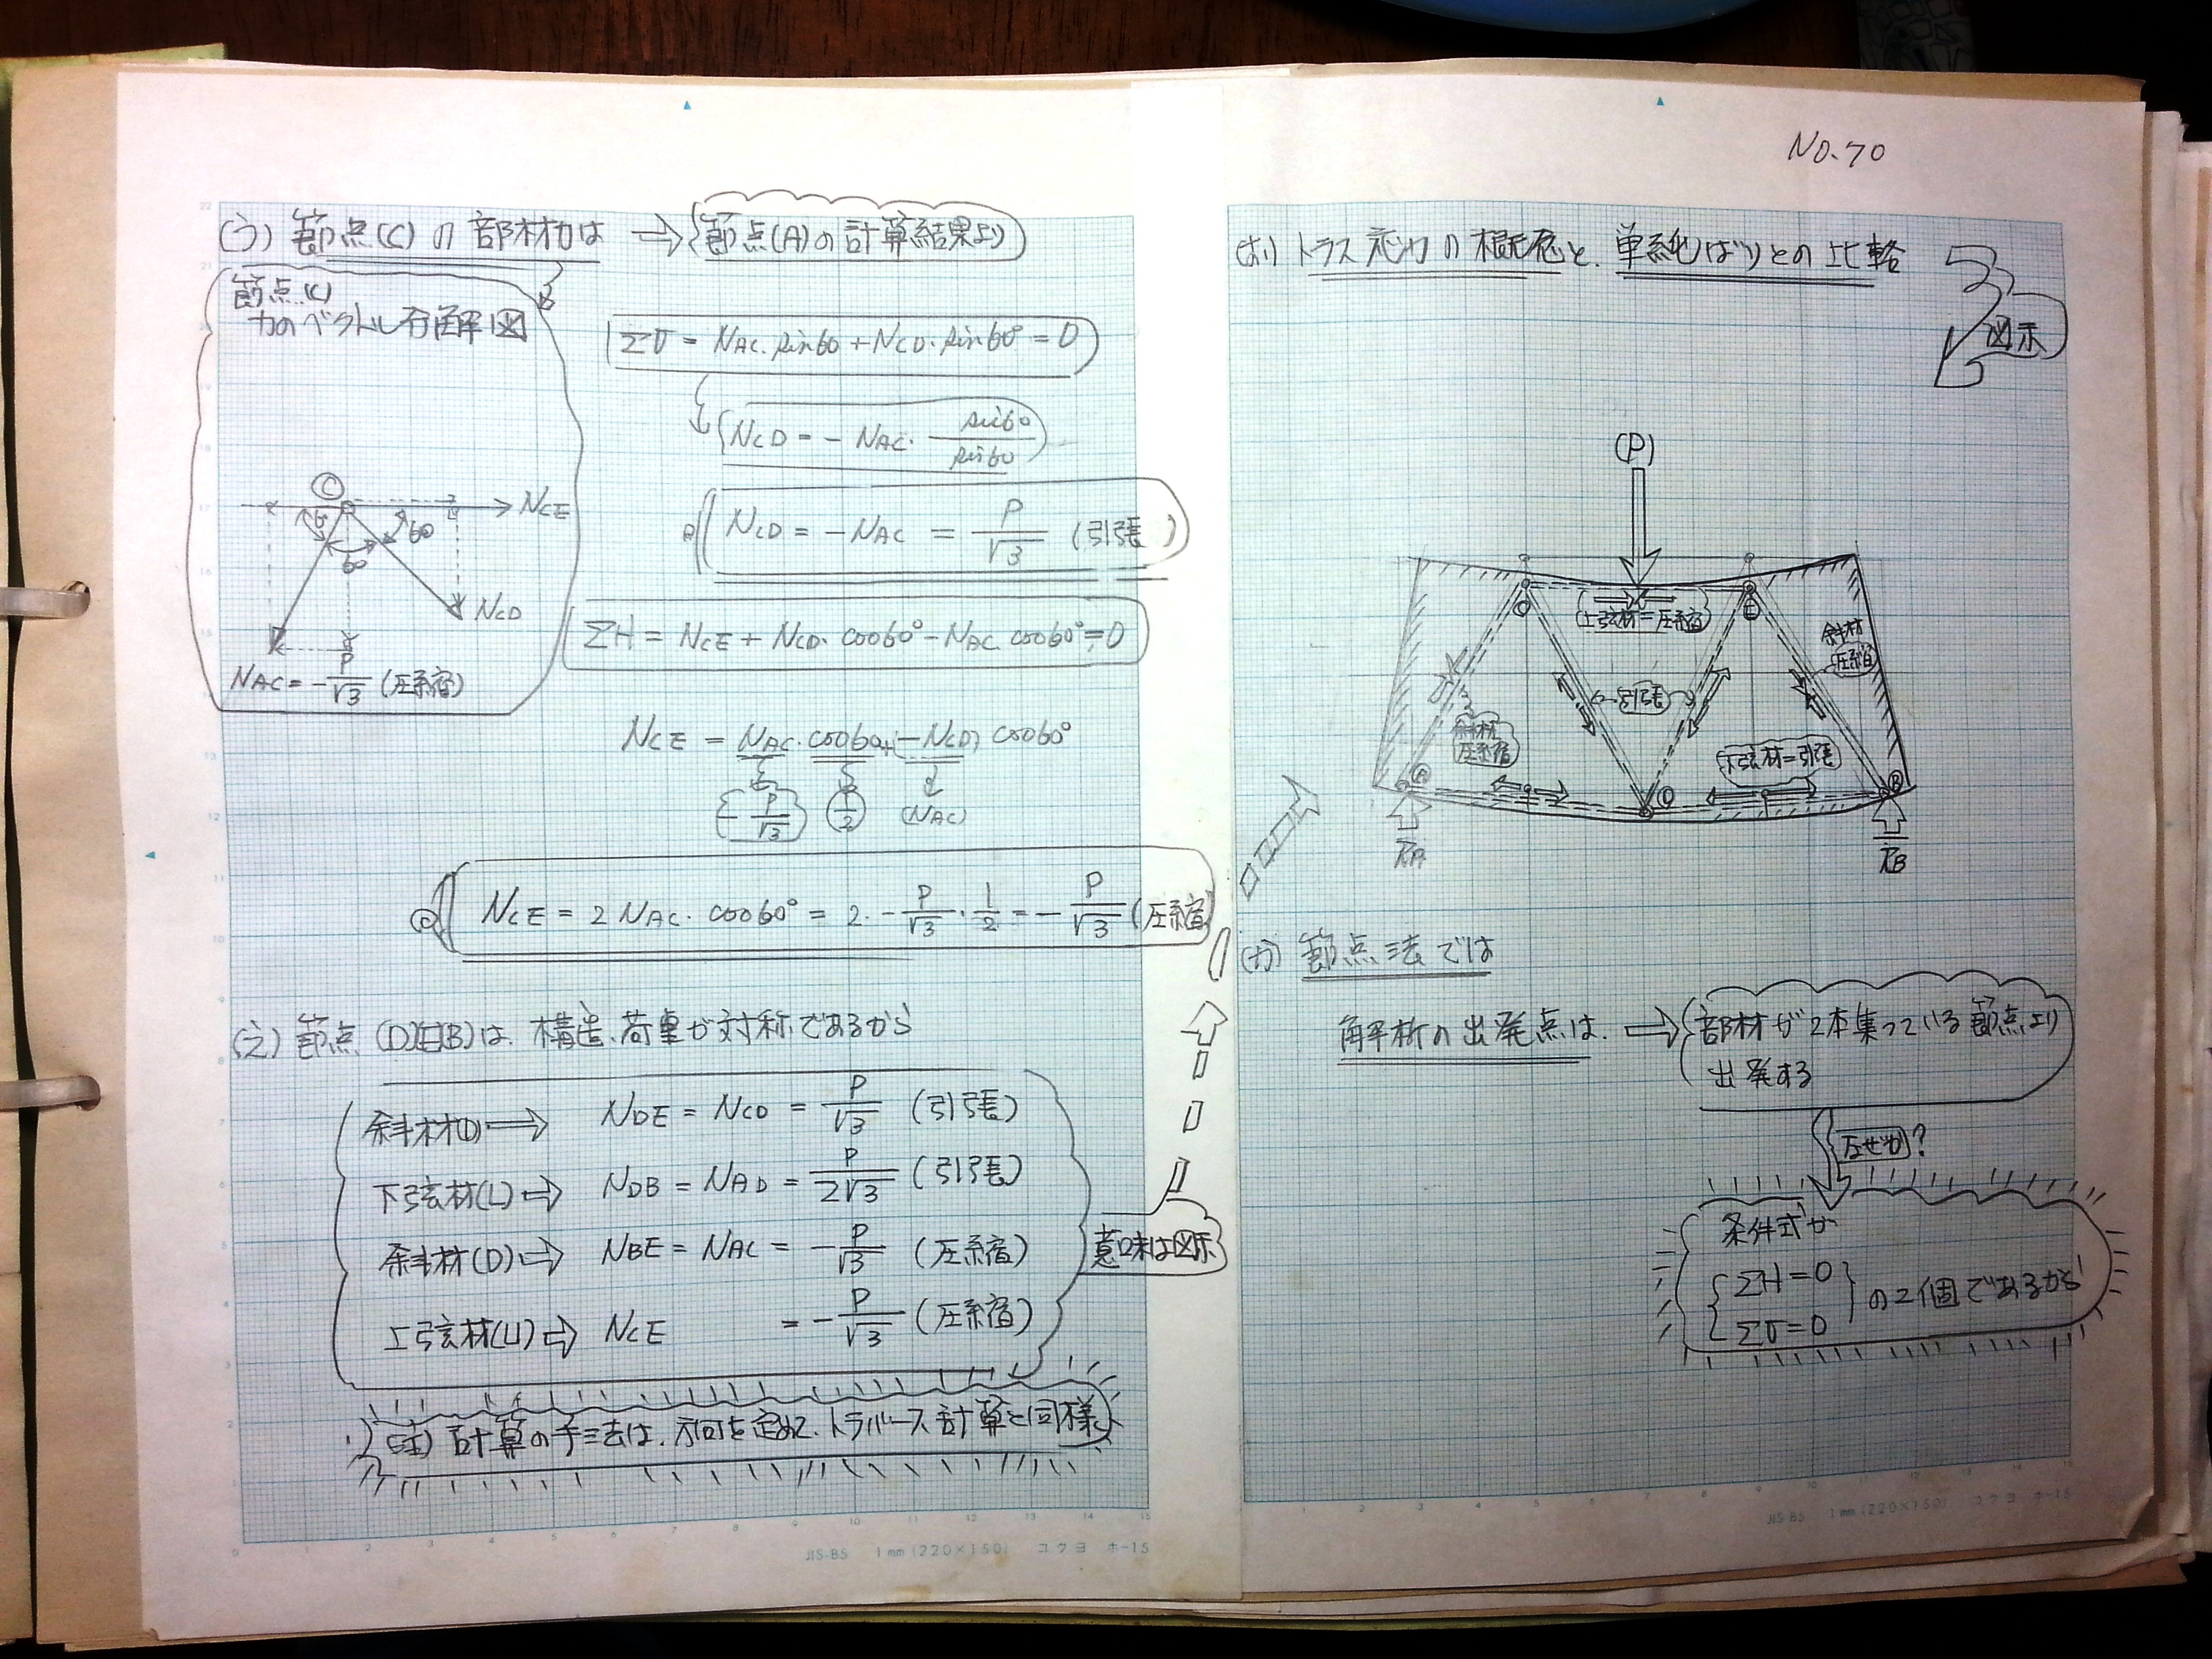 (う) 節点(C)の部材力は ⇒ 節点(A)の計算結果より
節点(C)
力のベクトル分解図
ΣV = NAC・sin60 + NCD・sin60° = 0
NCD = - NAC・ sin60/sin60
NCD = -NAC = P/√3 (引張)
C
NCE
60
60
60
NCD
NAC = - P/√3 (圧縮)
ΣH = NCE + NCD・cos60° - NAC cos60° = 0
NCE = NAC・cos60 + (-NCD) cos60°
- P/√3
1/2
(NAC)
NCE = 2 NAC・cos60° = 2・- P/√3 ・ 1/2 = - P/√3 (圧縮)
(え) 節点(D)(E)(B)は、構造、荷重が対称であるから
斜材(D) ⇒ NDE = NCD = P/√3 (引張)
下弦材(L) ⇒ NDB = NAD = P/2√3 (引張)
斜材(D) ⇒ NBE = NAC = - P/√3 (圧縮)
上弦材(U) ⇒ NCE = - P/√3 (圧縮)
意味は図示
(注) 計算の手法は、方向を定めて、トラバース計算と同様
JIS-B5 1mm(220×150) コクヨ ホ-15
NO.70
(お) トラス応力の概念と、単純ばりとの比較
図示
(P)
C
E
上弦材=圧縮
斜材
圧縮
引張
斜材
圧縮
下弦材=引張
A
D
B
RA
RB
(か) 節点法では
解析の出発点は、⇒ 部材が2本集っている節点より
出発する
なぜか?
条件式が
ΣH=0
ΣV=0
の2個であるから
JIS-B5 1mm(220×150) コクヨ ホ-15